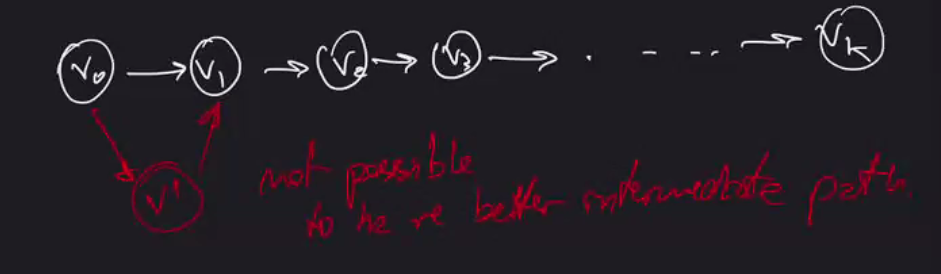 V₀ → V₁ → V₂ → V₃ → . - - -- → Vₖ
V'
not possible
to have better intermediate path.